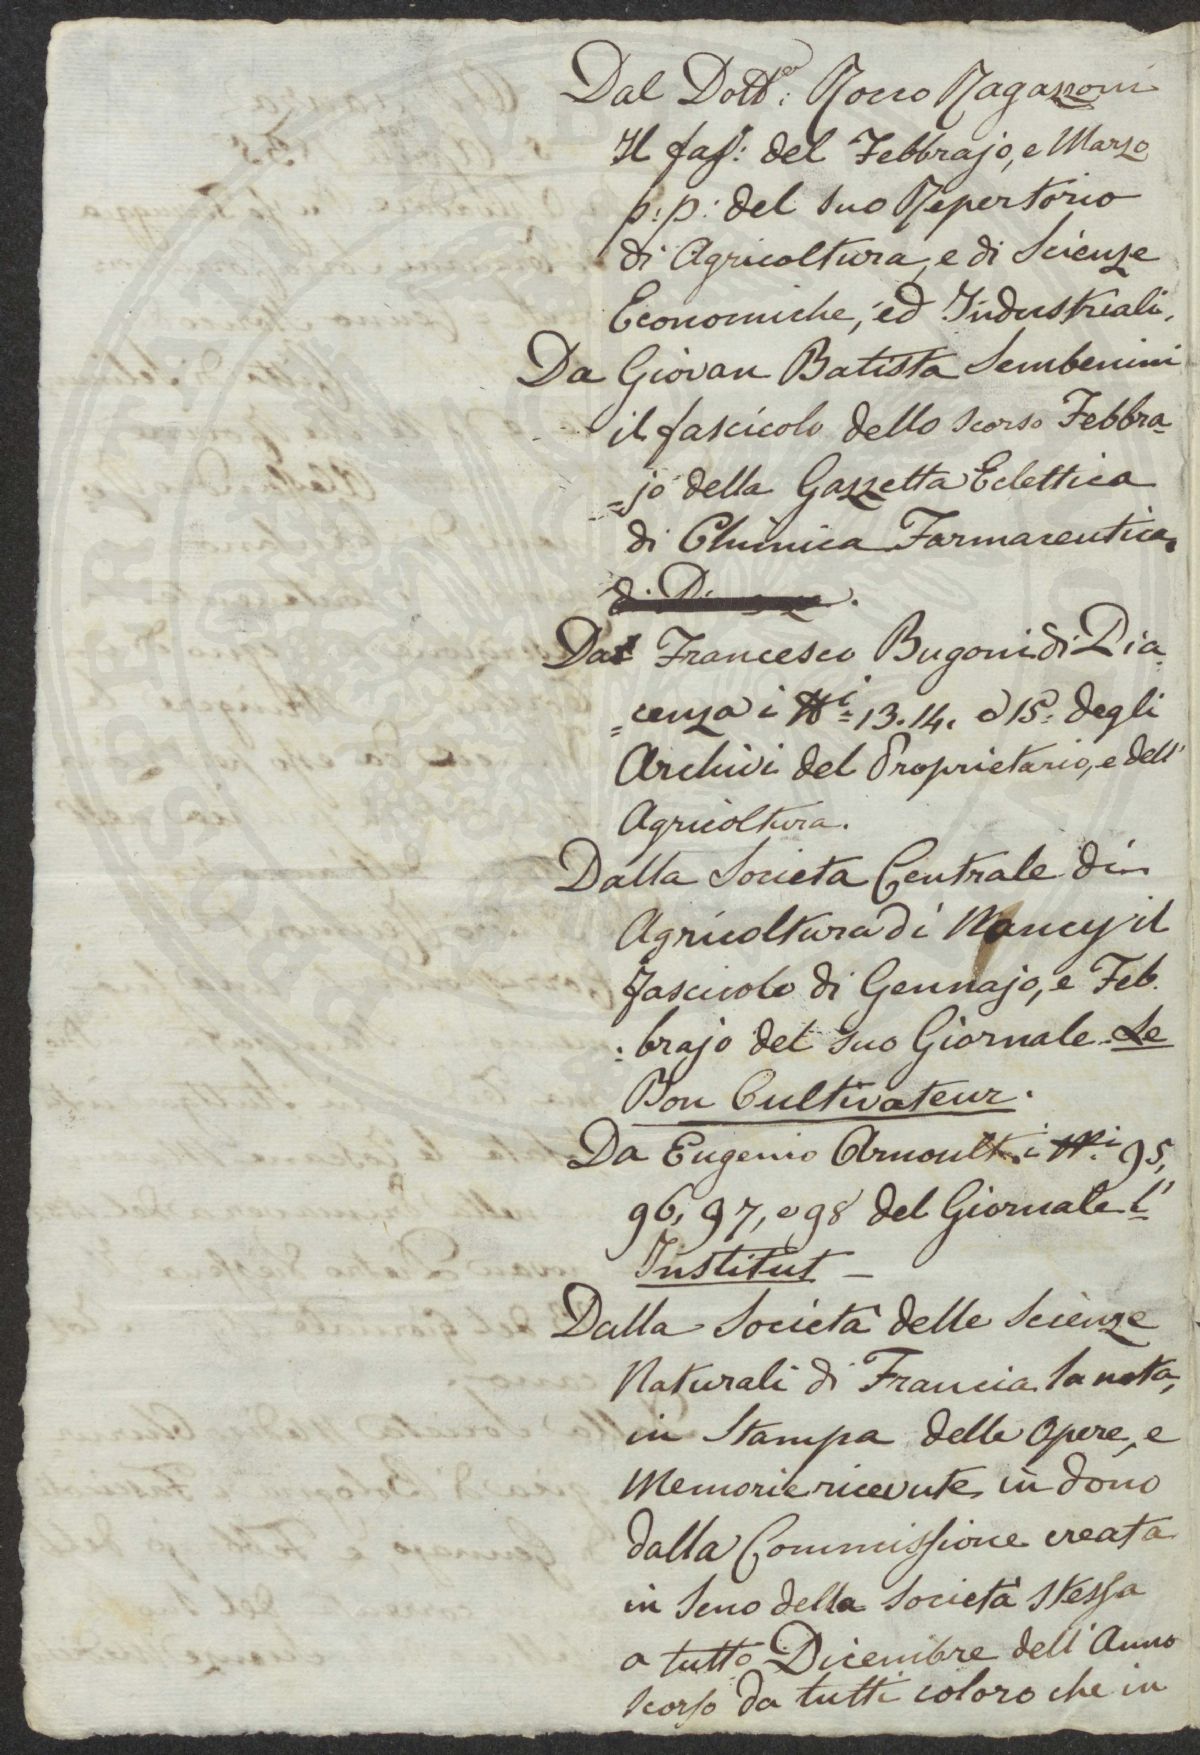 Dal Dott.er: Rocco Ragazzoni
Il fas.: del Febbrajo, e Marzo
p: p: del suo Repertorio
di Agricoltura, e di Scienze
Economiche, ed Industriali.
Da Giovan Batista Sembenini
il fascicolo dello scorso Febbra=
=jo della Gazzetta Eclettica
di Chimica Farmaceutica.
Da Francesco Bugoni di Pia=
=cenza i Ni= 13. 14. e 15. degli
Archivi del Proprietario, e dell'
Agricoltura.
Dalla Società Centrale di
Agricoltura di Nancy il
fascicolo di Gennajo, e Feb.
:brajo del suo Giornale Le
Bon Cultivateur.
Da Eugenio Arnoult i N.i 95,
96, 97, e 98 del Giornale l'
Institut —
Dalla Società delle Scienze
Naturali di Francia la nota,
in Stampa delle Opere, e
Memorie ricevute in dono
dalla Commissione creata
in Seno della Società stessa
a tutto Dicembre dell'Anno
scorso da tutti coloro che in